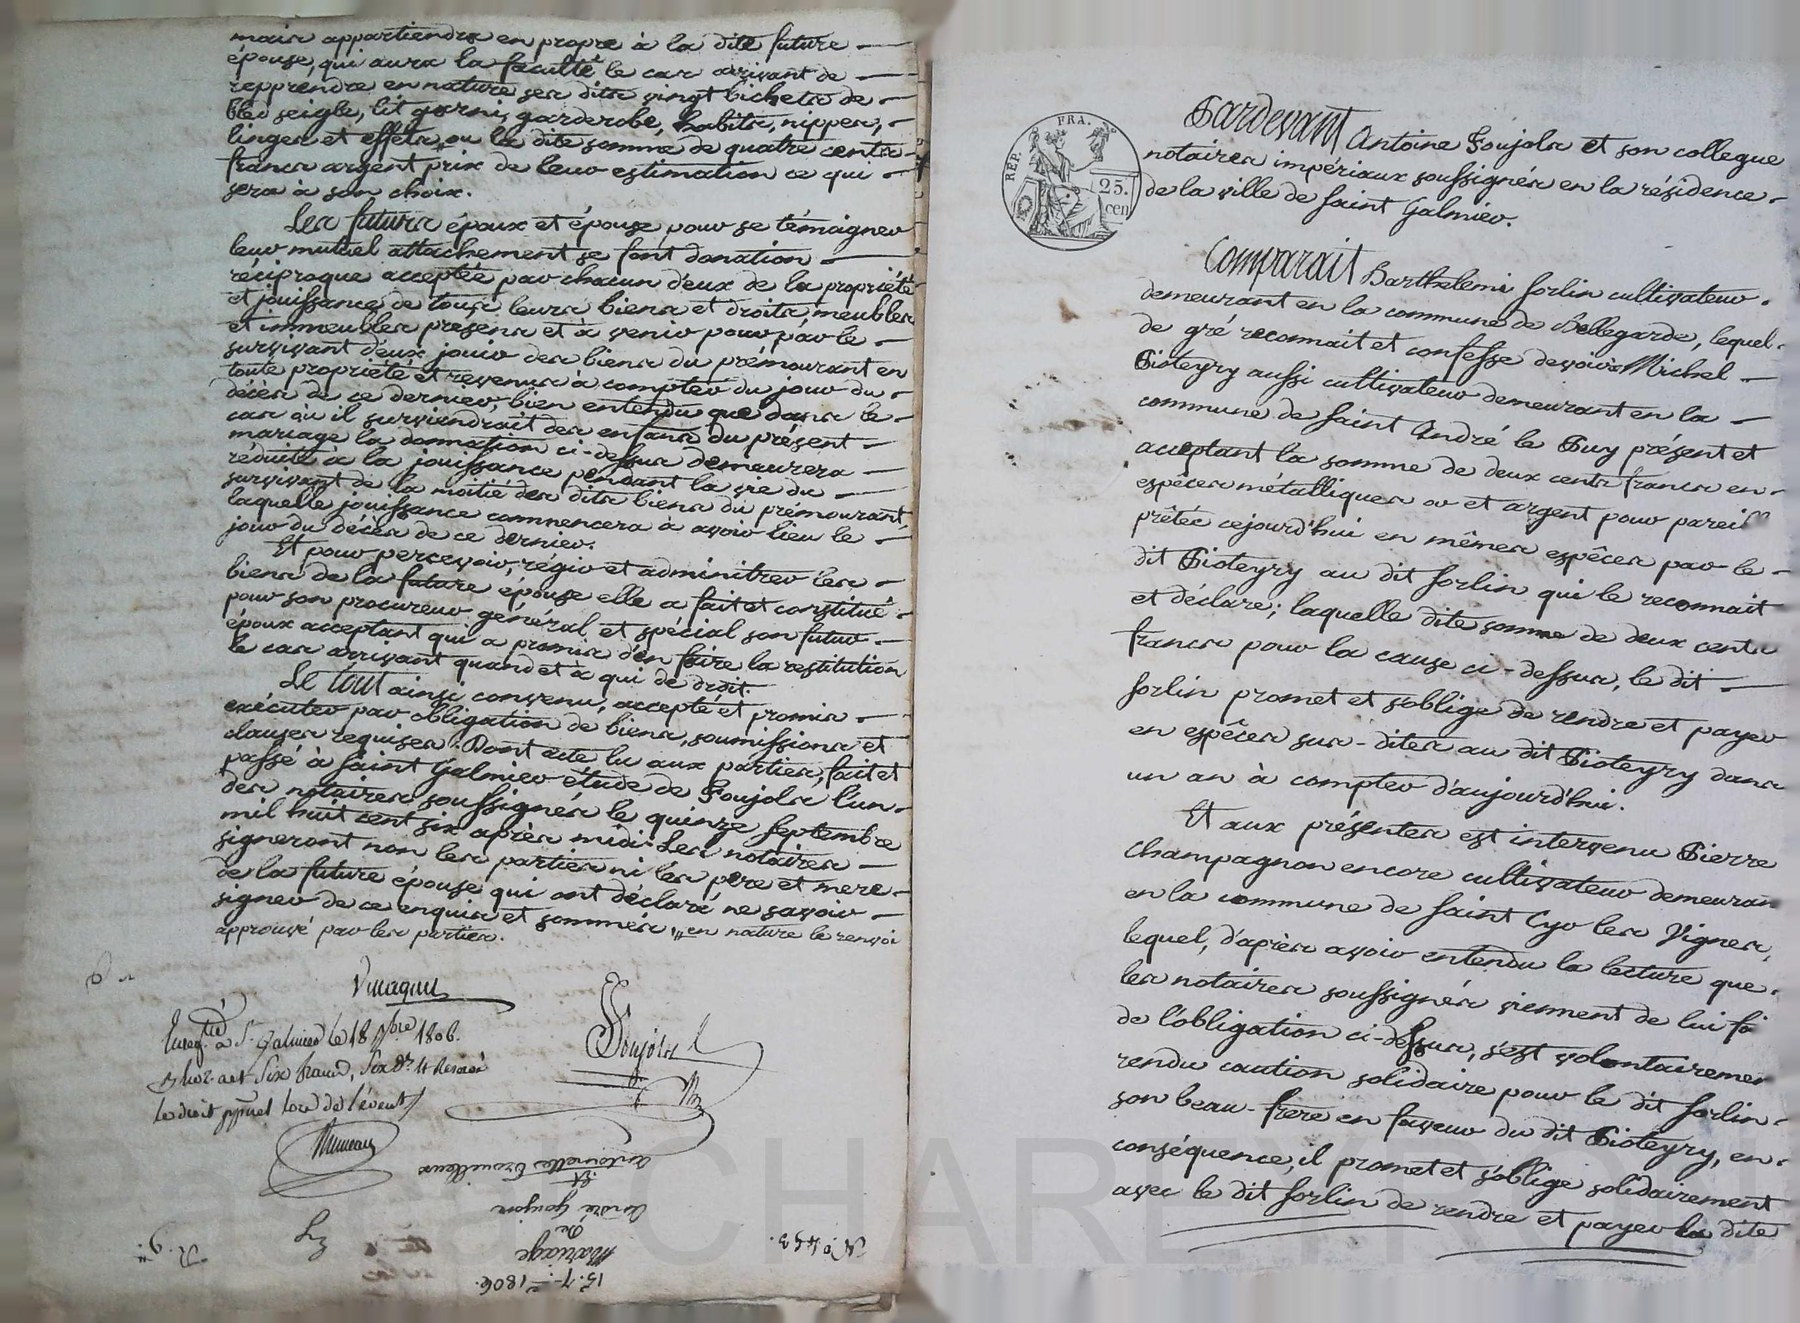 mais appartiendra en propre à la dite future
épouse, qui aura la faculté le cas arrivant de
repprendre en nature ses dits vingt bichets de
bled seigle, lit garni, garderobe, habits, nippes,
linges et effets, ou la dite somme de quatre cents
francs argent prix de leur estimation ce qui
sera à son choix.
Les futurs époux et épouse pour se témoigner
leur mutuel attachement se font donation
réciproque acceptée par chacun d'eux de la propriété
et jouissance de tous leurs biens et droits, meubles
et immeubles présens et à venir pour par le
survivant d'eux jouir des biens du prémourant en
toute propriété et revenus à compter du jour du
décès de ce dernier, bien entendu que dans le
cas où il surviendrait des enfans du présent
mariage la donnation ci-dessus demeurera
réduite à la jouissance pendant la vie du
survivant de la moitié des dits biens du prémourant
laquelle jouissance commencera à avoir lieu le
jour du décès de ce dernier.
Et pour percevoir, régir et adminitrer les
biens de la future épouse elle a fait et constitué
pour son procureur général et spécial son futur
époux acceptant qui a promis d'en faire la restitution
le cas arrivant quand et à qui de droit.
Le tout ainsi convenu, accepté et promis
exécuter par obligation de biens, soumissions et
clauses requises. Dont acte lu aux parties, fait et
passé à Saint Galmier étude de Poujols l'un
des notaires soussignés le quinze septembre
mil huit cent six après midi. Les notaires
signeront non les parties ni les pere et mere
de la future épouse qui ont déclaré ne savoir
signer de ce enquis et sommés, en nature le renvoi
approuvé par les parties.
Poujols
Enreg.tré à S.t Galmier le 18 7bre 1806.
six francs,
N.o 453.
15. 7.bre 1806.
Mariage
De
André Goujon
Et
antoinette
REP. FRA.
25.
cen
Pardevant Antoine Poujols et son collegue
notaires impériaux soussignés en la résidence
de la ville de Saint Galmier.
Comparait Barthelemi Forlin cultivateur
demeurant en la commune de Bellegarde, lequel
de gré reconnait et confesse devoir à Michel
Pioteyry aussi cultivateur demeurant en la
commune de Saint André le Puy présent et
acceptant la somme de deux cents francs en
espèces métalliques or et argent pour pareill
prêtée cejourd'hui en mêmes espêces par le
dit Pioteyry au dit Forlin qui le reconnait
et déclare; laquelle dite somme de deux cents
francs pour la cause ci-dessus, le dit
Forlin promet et s'oblige de rendre et payer
en espêces sus-dites au dit Pioteyry dans
un an à compter d'aujourd'hui.
Et aux présentes est intervenu Pierre
Champagnon encore cultivateur demeuran
en la commune de Saint Cyr les Vignes,
lequel, d'après avoir entendu la lecture que
les notaires soussignés viennent de lui fai
de l'obligation ci-dessus, s'est volontairemen
rendu caution solidaire pour le dit Forlin
son beau-frere en faveur du dit Pioteyry, en
conséquence, il promet et s'oblige solidairement
avec le dit Forlin de rendre et payer la dite
CHAREYRON